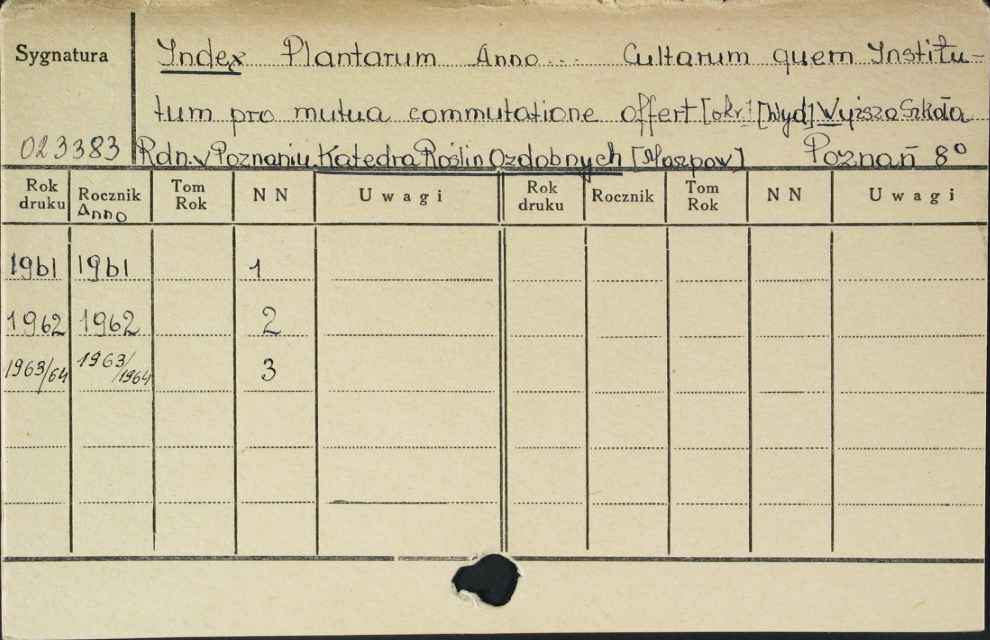 Sygnatura
Index Plantarum Anno... Cultarum quem Institu-
tum pro mutua commutatione offert [okr.] [Wyd] Wyższa Szkoła
023383 Roln. w Poznaniu Katedra Roślin Ozdobnych Poznań 8°
Rok druku Rocznik Tom Rok NN Uwagi Rok druku Rocznik Tom Rok NN Uwagi
Anno
1961 1961 1
1962 1962 2
1963/64 1963/1964 3